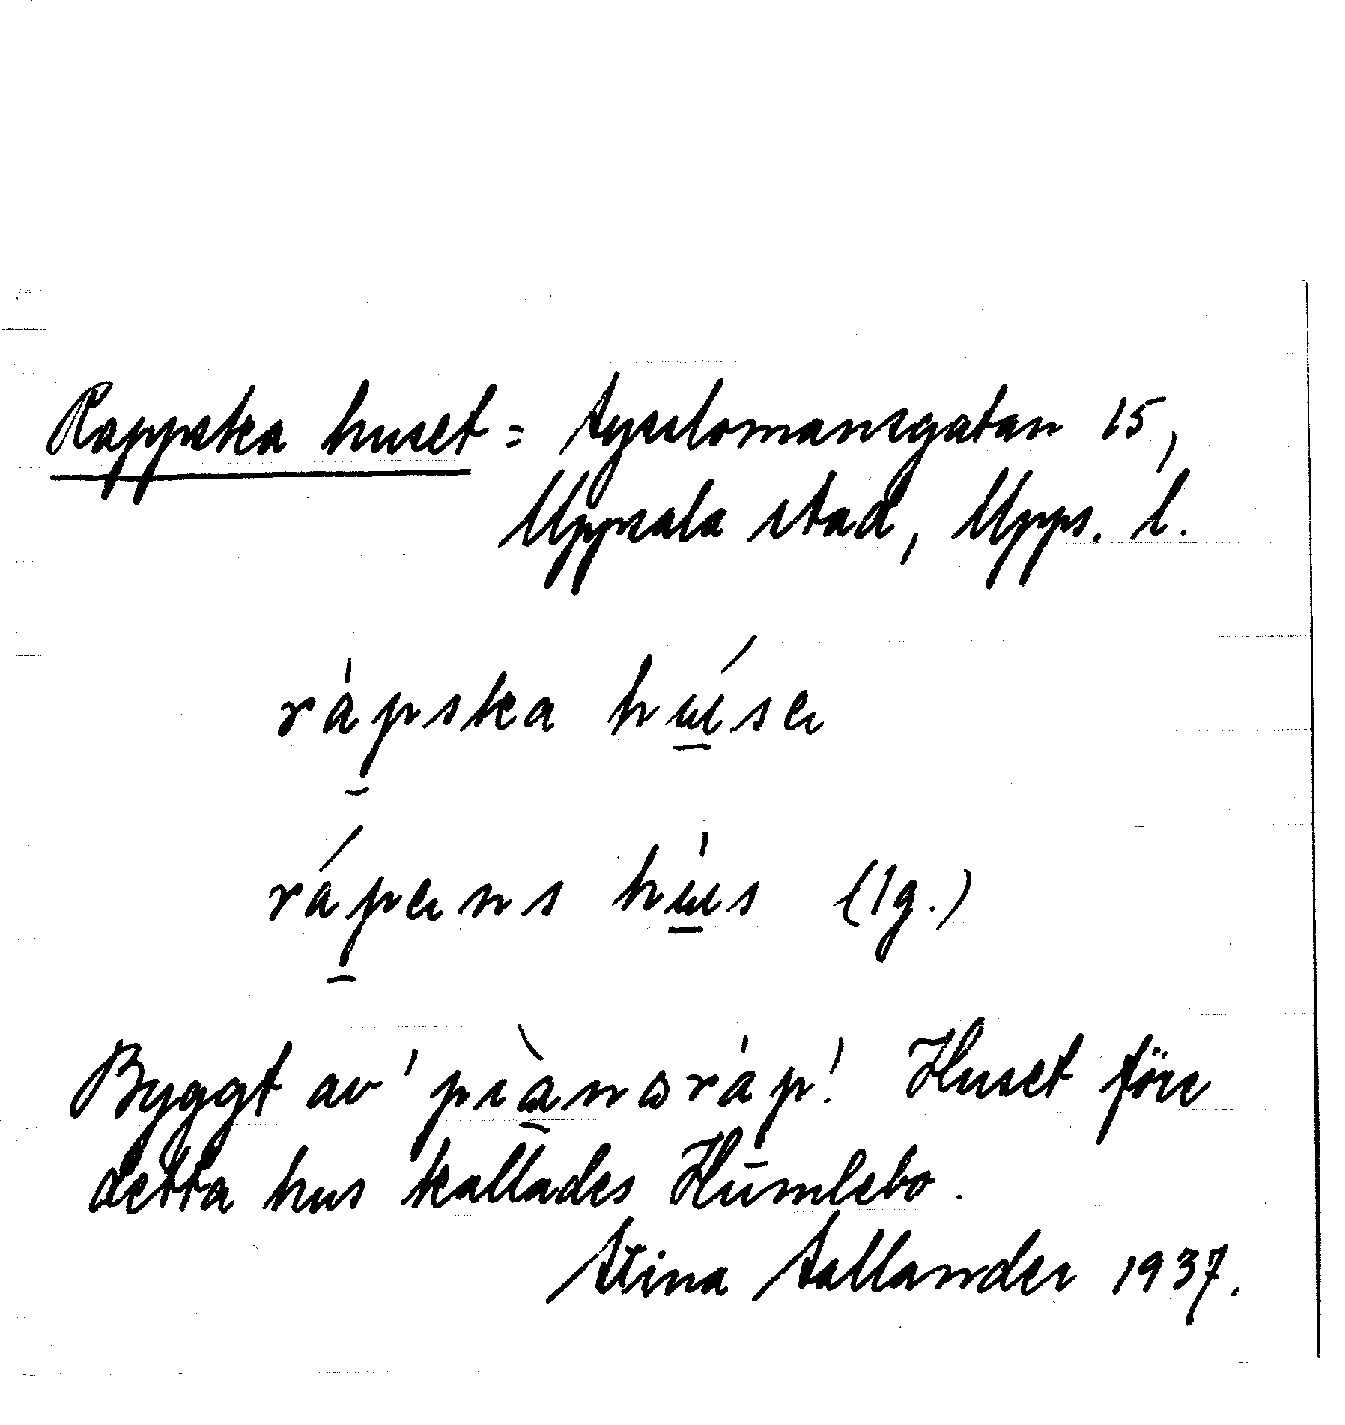 Rappska huset = Sysslomansgatan 15,
Uppsala stad, Upps. l.
rápska húse
rápens hús (lg.)
Byggt av 'pianoráp'. Huset före
detta hus kallades Humlebo.
Stina Sallander 1937.